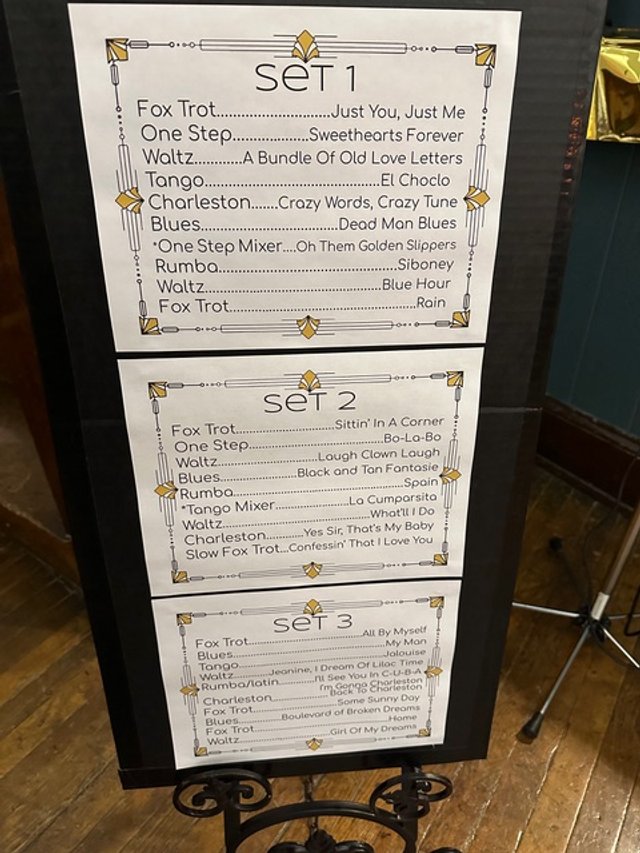 SET 1
Fox Trot..............................Just You, Just Me
One Step...................Sweethearts Forever
Waltz...........A Bundle Of Old Love Letters
Tango..............................................El Choclo
Charleston.......Crazy Words, Crazy Tune
Blues....................................Dead Man Blues
*One Step Mixer....Oh Them Golden Slippers
Rumba..............................................Siboney
Waltz.............................................Blue Hour
Fox Trot................................................Rain
SET 2
Fox Trot............................Sittin' In A Corner
One Step.......................................Bo-La-Bo
Waltz...........................Laugh Clown Laugh
Blues......................Black and Tan Fantasie
Rumba................................................Spain
*Tango Mixer.....................La Cumparsita
Waltz.........................................What'll I Do
Charleston...........Yes Sir, That's My Baby
Slow Fox Trot...Confessin' That I Love You
SET 3
Fox Trot................................All By Myself
Blues..............................................My Man
Tango.............................................Jalouise
Waltz............Jeanine, I Dream Of Lilac Time
Rumba/latin............I'll See You In C-U-B-A
Charleston...............I'm Gonna Charleston
Back To Charleston
Fox Trot..........................Some Sunny Day
Blues..............Boulevard of Broken Dreams
Fox Trot..............................................Home
Waltz...............................Girl Of My Dreams